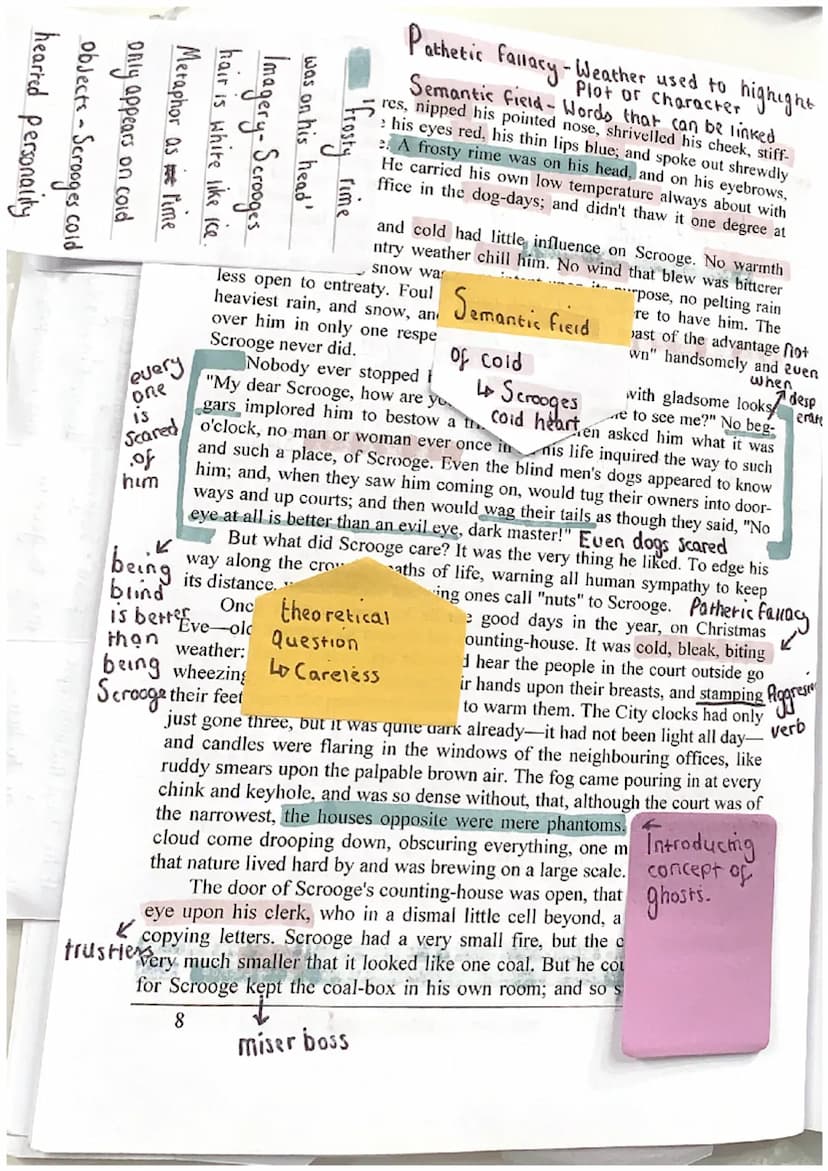 Pathetic fallacy - Weather used to highlight
Plot or character
Semantic field - Words that can be linked
'frosty rime
was on his head'
Imagery - Scrooges
hair is white like ice.
Metaphor as rime
only appears on cold
objects - Scrooges cold
hearted personality
res, nipped his pointed nose, shrivelled his cheek, stiff-
his eyes red, his thin lips blue; and spoke out shrewdly
A frosty rime was on his head, and on his eyebrows,
He carried his own low temperature always about with
ffice in the dog-days; and didn't thaw it one degree at
and cold had little influence on Scrooge. No warmth
ntry weather chill him. No wind that blew was bitterer
snow was rpose, no pelting rain
less open to entreaty. Foul re to have him. The
heaviest rain, and snow, an ast of the advantage
over him in only one respe wn" handsomely and
Scrooge never did.
Semantic field
of cold
↳ Scrooges
cold heart
Not
even
when
desp
erate
Nobody ever stopped with gladsome looks,
"My dear Scrooge, how are yo e to see me?" No beg-
gars implored him to bestow a tri ren asked him what it was
o'clock, no man or woman ever once in his life inquired the way to such
and such a place, of Scrooge. Even the blind men's dogs appeared to know
him; and, when they saw him coming on, would tug their owners into door-
ways and up courts; and then would wag their tails as though they said, "No
eye at all is better than an evil eye, dark master!"
Even dogs scared
every
one
is
scared
of
him
But what did Scrooge care? It was the very thing he liked. To edge his
way along the crow aths of life, warning all human sympathy to keep
its distance, ing ones call "nuts" to Scrooge.
being
blind
is better
than
being
Scrooge
Pathetic fallacy
Onc good days in the year, on Christmas
Eve—old ounting-house. It was cold, bleak, biting
weather: d hear the people in the court outside go
wheezing ir hands upon their breasts, and stamping
their feet to warm them. The City clocks had only
theoretical
question
↳ Careless
verb
just gone three, but it was quite dark already—it had not been light all day—
and candles were flaring in the windows of the neighbouring offices, like
ruddy smears upon the palpable brown air. The fog came pouring in at every
chink and keyhole, and was so dense without, that, although the court was of
the narrowest, the houses opposite were mere phantoms.
cloud come drooping down, obscuring everything, one m
that nature lived hard by and was brewing on a large scale.
Introducing
concept of
ghosts.
The door of Scrooge's counting-house was open, that
eye upon his clerk, who in a dismal little cell beyond, a
copying letters. Scrooge had a very small fire, but the c
very much smaller that it looked like one coal. But he cou
for Scrooge kept the coal-box in his own room; and so s
trustless
8
miser boss